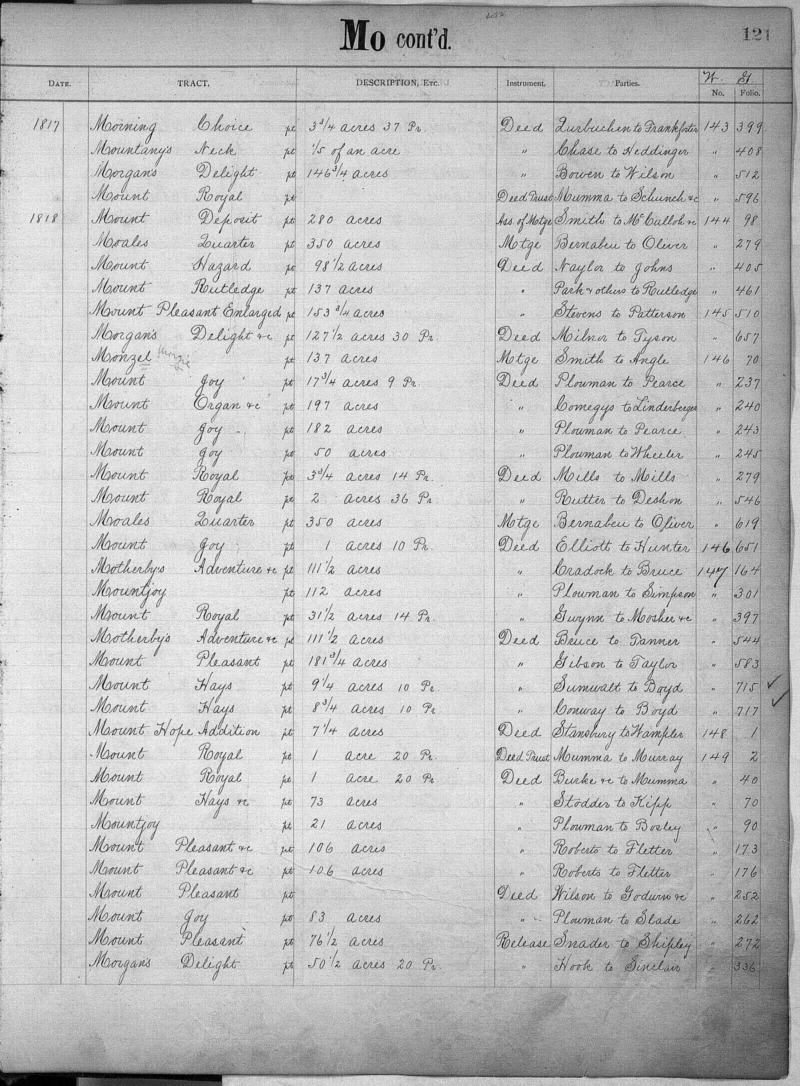 Mo cont'd.
121
W. G.
DATE. TRACT. DESCRIPTION, ETC. Instrument. Parties. No. Folio.
1817 Morning Choice pt 3 3/4 acres 37 Pr. Deed Zurbuchen to Frankforter 143 399
Mountany's Neck pt 1/5 of an acre " Chase to Heddinger " 408
Morgan's Delight pt 146 3/4 acres " Bowen to Wilson " 512
Mount Royal pt Deed Trust Mumma to Schunck &c " 596
1818 Mount Deposit pt 280 acres Ass. of Mtge Smith to McCulloh &c 144 98
Moales Quarter pt 350 acres Mtge Bernabeu to Oliver " 279
Mount Hazard pt 98 1/2 acres Deed Naylor to Johns " 405
Mount Rutledge pt 137 acres " Park & others to Rutledge " 461
Mount Pleasant Enlarged pt 153 3/4 acres " Stevens to Patterson 145 510
Morgan's Delight &c pt 127 1/2 acres 30 Pr. Deed Milner to Tyson " 657
Monzel pt 137 acres Mtge Smith to Angle 146 70
Mount Joy pt 17 3/4 acres 9 Pr. Deed Plowman to Pearce " 237
Mount Organ &c pt 197 acres " Comegys to Linderberger " 240
Mount Joy pt 182 acres " Plowman to Pearce " 243
Mount Joy pt 50 acres " Plowman to Wheeler " 245
Mount Royal pt 3 3/4 acres 14 Pr. Deed Mills to Mills " 279
Mount Royal pt 2 acres 36 Pr. " Rutter to Deshon " 546
Moales Quarter pt 350 acres Mtge Bernabeu to Oliver " 619
Mount Joy pt 1 acres 10 Pr. Deed Elliott to Hunter 146 651
Motherby's Adventure &c pt 111 1/2 acres " Cradock to Bruce 147 164
Mountjoy pt 112 acres " Plowman to Simpson " 301
Mount Royal pt 31 1/2 acres 14 Pr. " Gwynn to Mosher &c " 397
Motherby's Adventure &c pt 111 1/2 acres Deed Bruce to Tanner " 544
Mount Pleasant pt 181 3/4 acres " Gibson to Taylor " 583
Mount Hays pt 9 1/4 acres 10 Pr. " Sumwalt to Boyd " 715
Mount Hays pt 8 3/4 acres 10 Pr. " Conway to Boyd " 717
Mount Hope Addition pt 7 1/4 acres Deed Stansbury to Wampler 148 1
Mount Royal pt 1 acre 20 Pr. Deed Trust Mumma to Murray 149 2
Mount Royal pt 1 acre 20 Pr. Deed Burke &c to Mumma " 40
Mount Hays &c pt 73 acres " Stodder to Kipp " 70
Mountjoy pt 21 acres " Plowman to Bosley " 90
Mount Pleasant &c pt 106 acres " Roberts to Fletter " 173
Mount Pleasant &c pt 106 acres " Roberts to Fletter " 176
Mount Pleasant pt Deed Wilson to Godwin &c " 252
Mount Joy pt 83 acres " Plowman to Slade " 262
Mount Pleasant pt 76 1/2 acres Release Snader to Shipley " 272
Morgan's Delight pt 50 1/2 acres 20 Pr. " Hook to Sinclair " 336